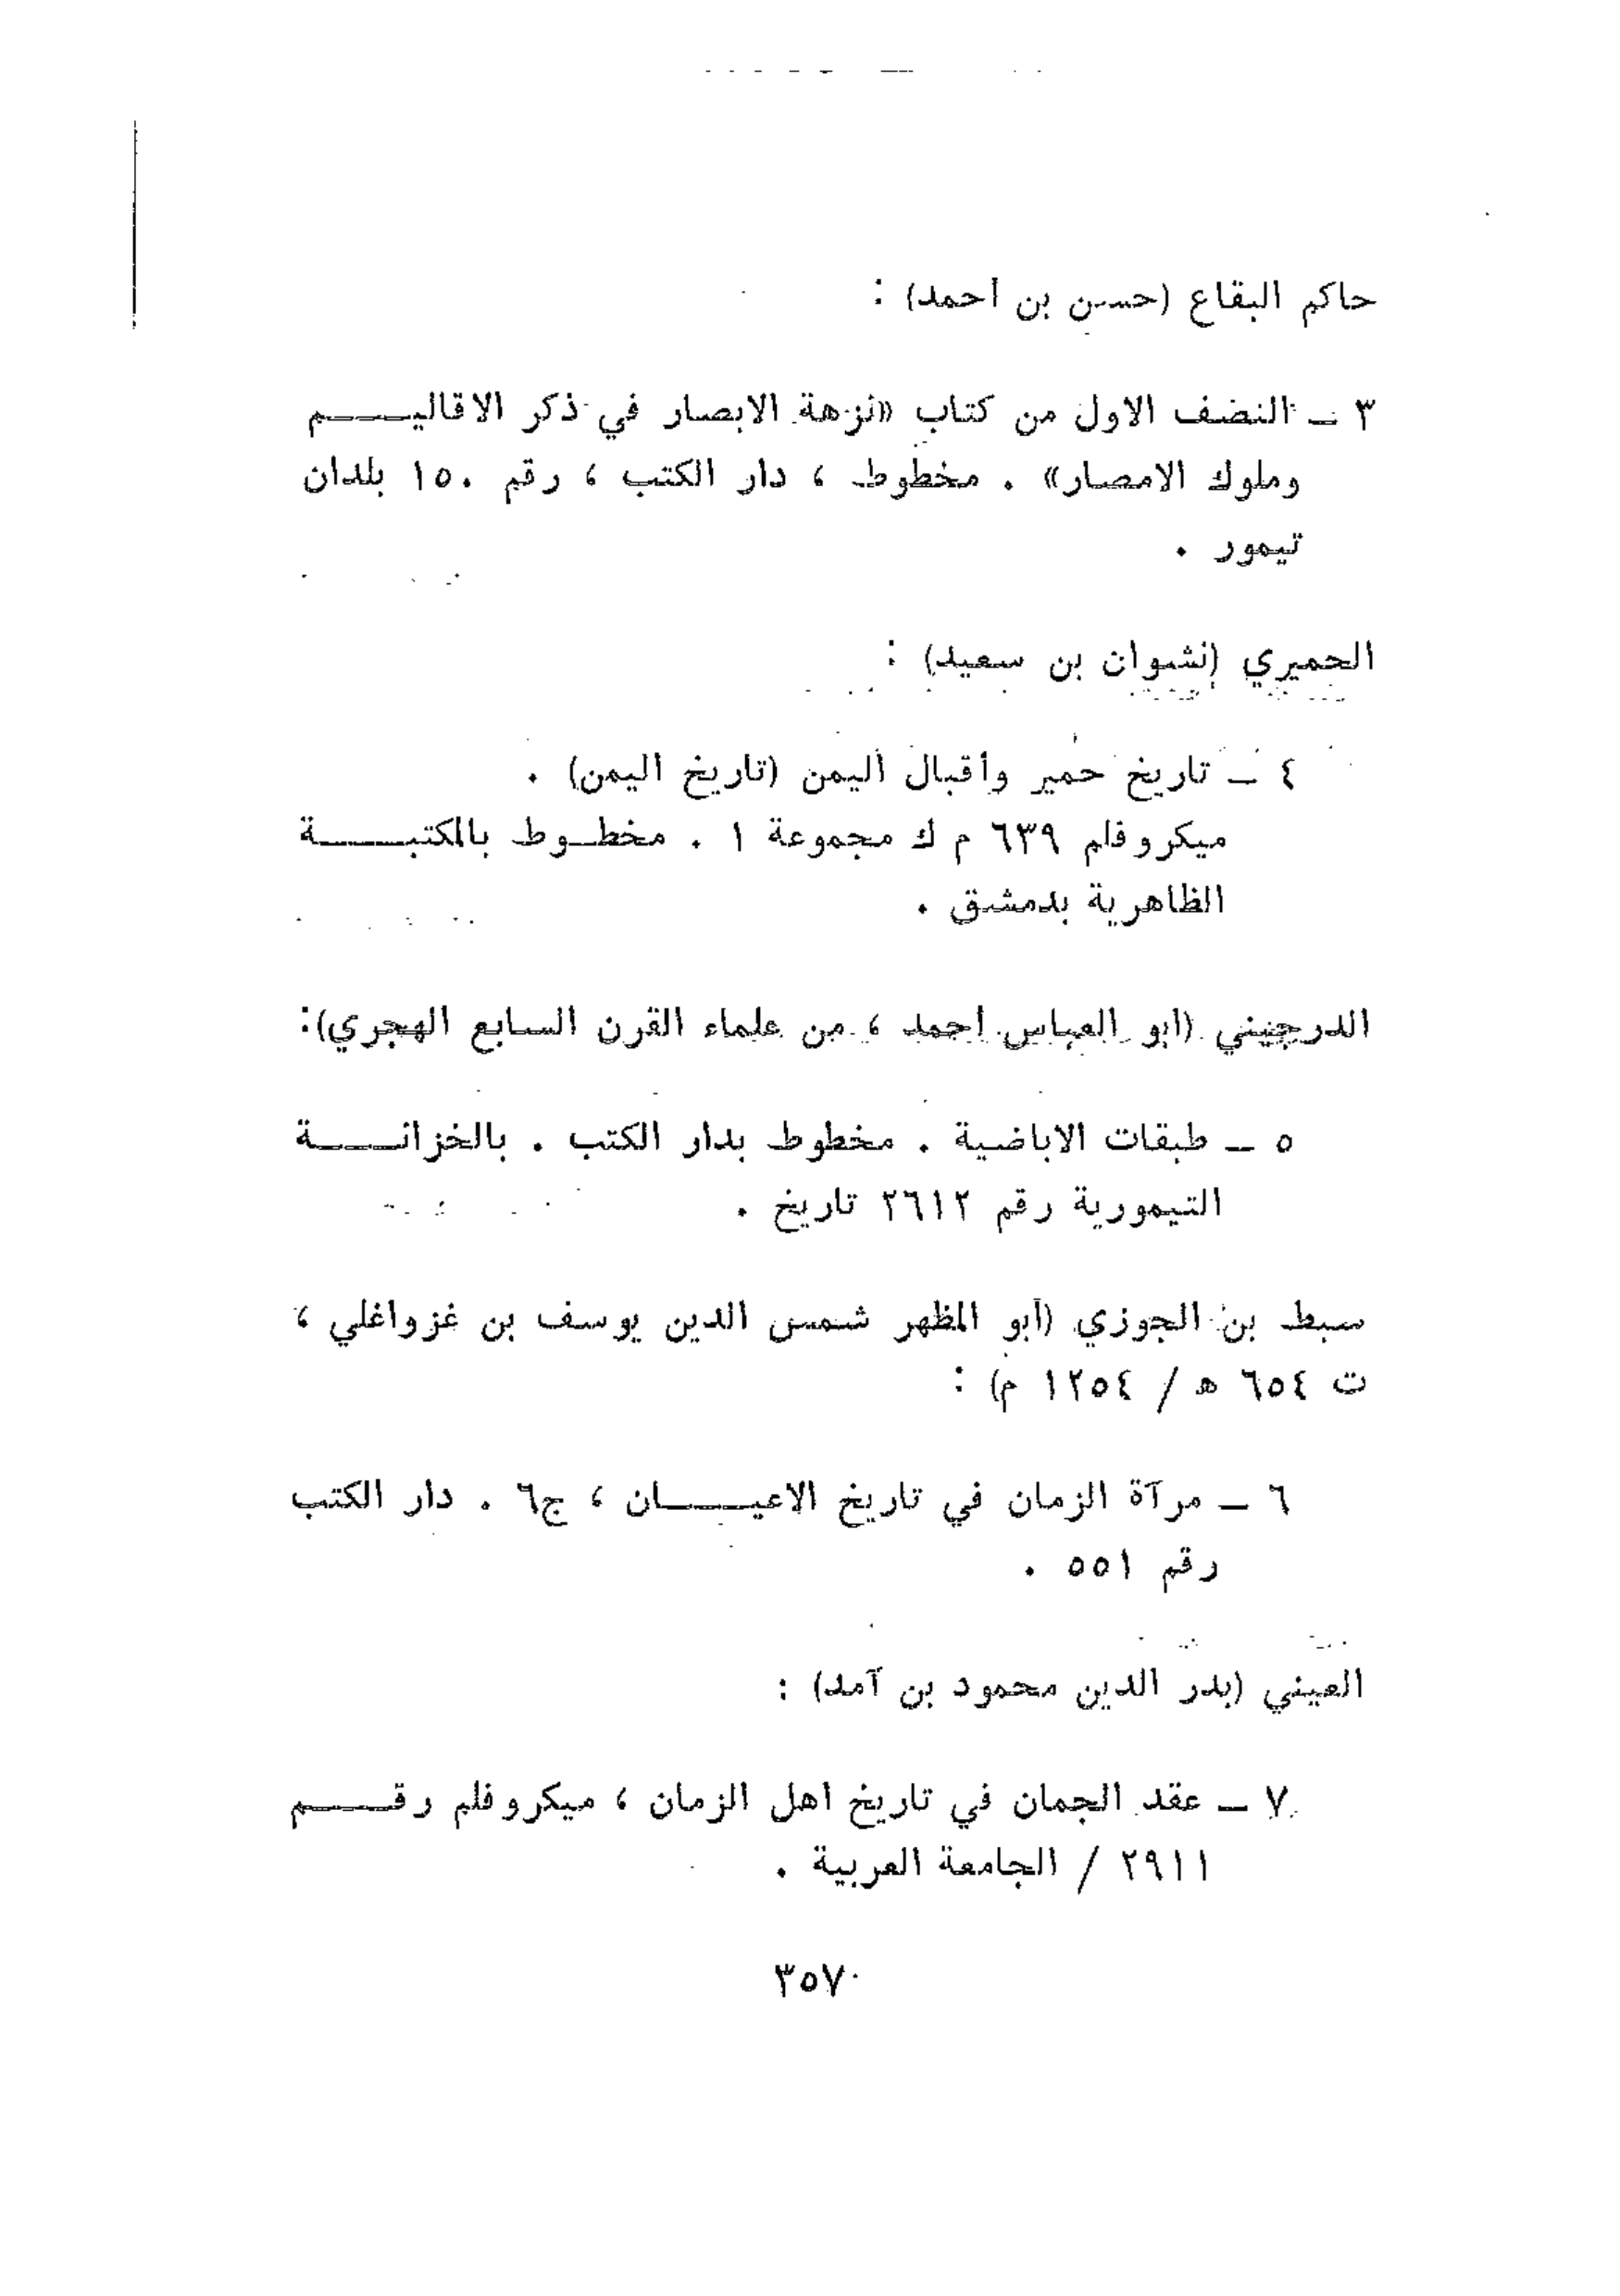 حاكم البقاع (حسن بن احمد) :
٣ ــ النصف الاول من كتاب «نزهة الابصار في ذكر الاقاليـــم
وملوك الامصار» . مخطوط ، دار الكتب ، رقم ١٥٠ بلدان
تيمور .
الحميري (نشوان بن سعيد) :
٤ ــ تاريخ حمير وأقبال اليمن (تاريخ اليمن) .
ميكروفلم ٦٣٩ م ك مجموعة ١ . مخطــوط بالمكتبـــة
الظاهرية بدمشق .
الدرجيني (ابو العباس احمد ، من علماء القرن السابع الهجري):
٥ ــ طبقات الاباضية . مخطوط بدار الكتب . بالخزانـــة
التيمورية رقم ٢٦١٢ تاريخ .
سبط بن الجوزي (أبو المظهر شمس الدين يوسف بن غزواغلي ،
ت ٦٥٤ ه / ١٢٥٤ م) :
٦ ــ مرآة الزمان في تاريخ الاعيـــان ، ج٦ . دار الكتب
رقم ٥٥١ .
العيني (بدر الدين محمود بن آمد) :
٧ ــ عقد الجمان في تاريخ اهل الزمان ، ميكروفلم رقـــم
٢٩١١ / الجامعة العربية .
٣٥٧